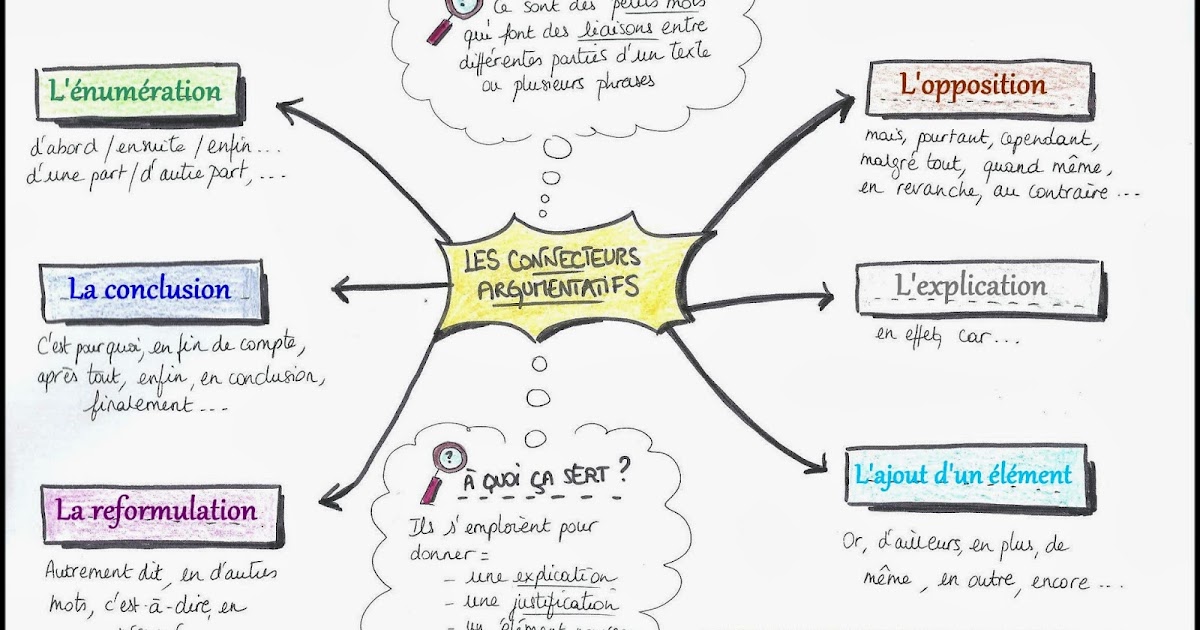 Ce sont des petits mots
qui font des liaisons entre
différentes parties d'un texte
ou plusieurs phrases
L'énumération
d'abord / ensuite / enfin...
d'une part / d'autre part, ...
L'opposition
mais, pourtant, cependant,
malgré tout, quand même,
en revanche, au contraire ...
LES CONNECTEURS
ARGUMENTATIFS
La conclusion
C'est pourquoi, en fin de compte,
après tout, enfin, en conclusion,
finalement ...
L'explication
en effet, car...
La reformulation
Autrement dit, en d'autres
mots, c'est-à-dire, en
?
À QUOI ÇA SERT ?
Ils s'emploient pour
donner :
- une explication
- une justification
- un élément
L'ajout d'un élément
Or, d'ailleurs, en plus, de
même, en outre, encore ...